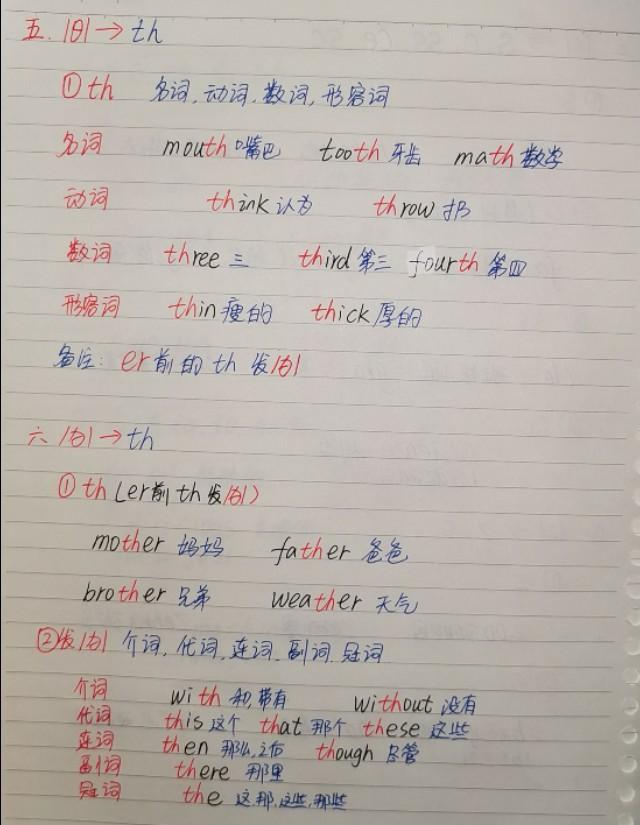 五. /θ/ → th
① th 名词, 动词, 数词, 形容词
名词 mouth 嘴巴 tooth 牙齿 math 数学
动词 think 认为 throw 扔
数词 three 三 third 第三 fourth 第四
形容词 thin 瘦的 thick 厚的
备注: er前的 th 发/ð/
六 /ð/ → th
① th (er前th发/ð/)
mother 妈妈 father 爸爸
brother 兄弟 weather 天气
②发/ð/ 介词, 代词, 连词, 副词, 冠词
介词 with 和, 带有 without 没有
代词 this 这个 that 那个 these 这些
连词 then 那么, 之后 though 尽管
副词 there 那里
冠词 the 这, 那, 这些, 那些